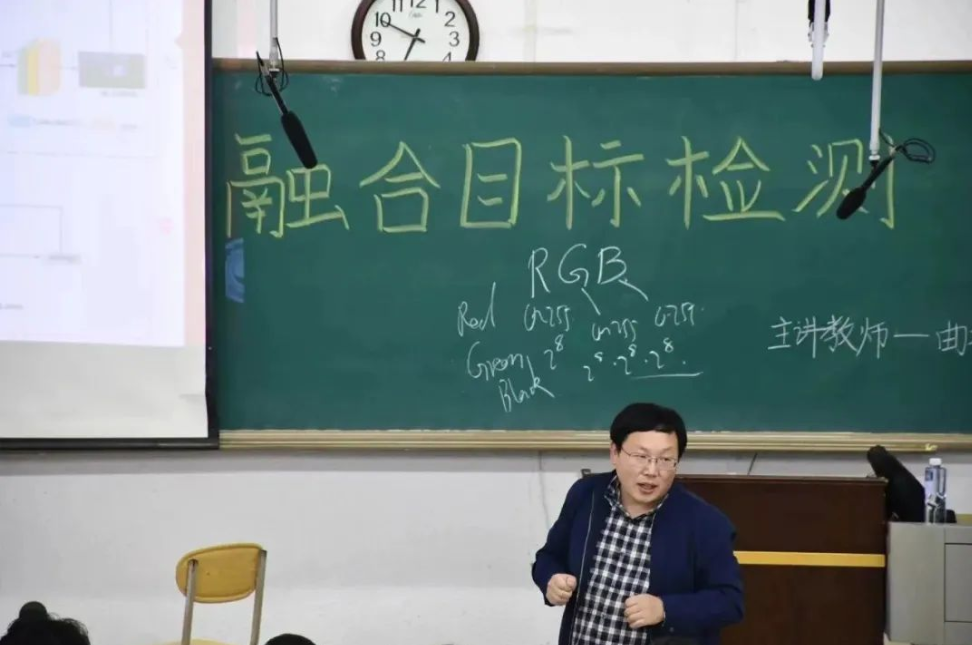 10 11 12 1 2 3 4 8 9
融合目标检测
RGB
Red 0-255 0-255 0-255
Green 2⁸ 2⁸·2⁸·2⁸
Black
主讲教师—曲